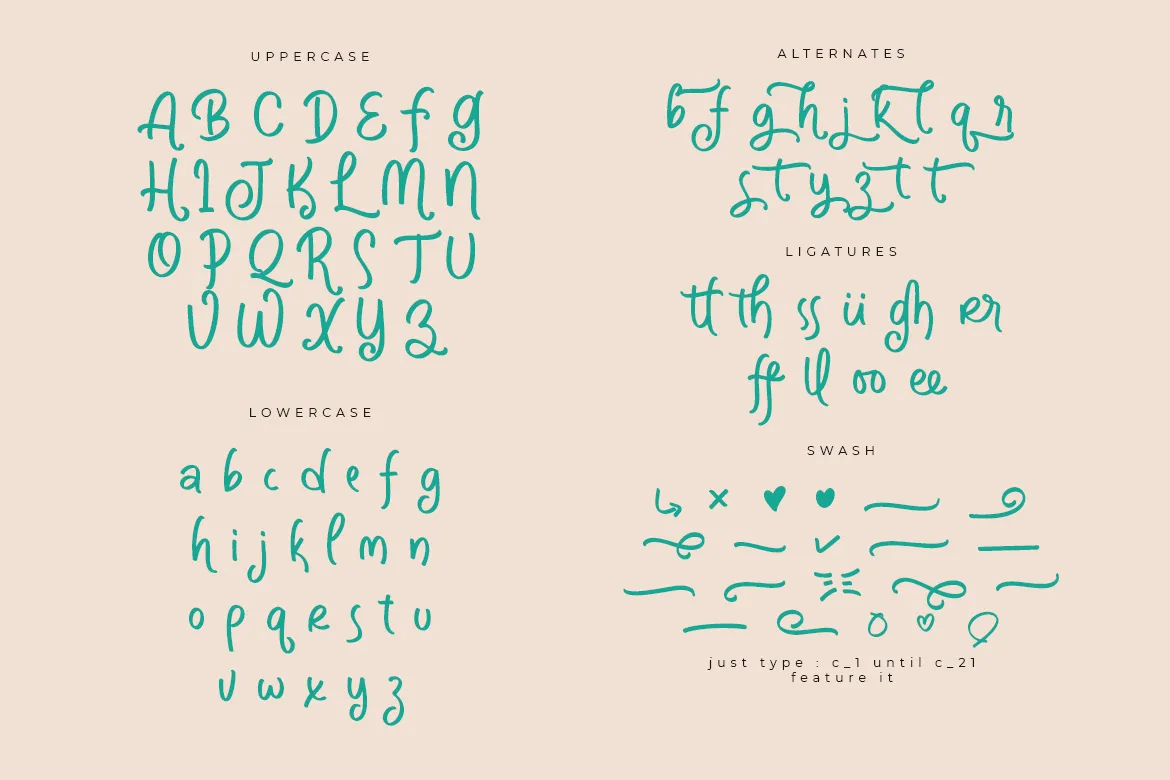 UPPERCASE
A B C D E F G
H I J K L M N
O P Q R S T U
V W X Y Z
LOWERCASE
a b c d e f g
h i j k l m n
o p q r s t u
v w x y z
ALTERNATES
b f g h j k l q r
s t y z t t
LIGATURES
tt th ss ii gh er
ff ll oo ee
SWASH
just type : c_1 until c_21
feature it